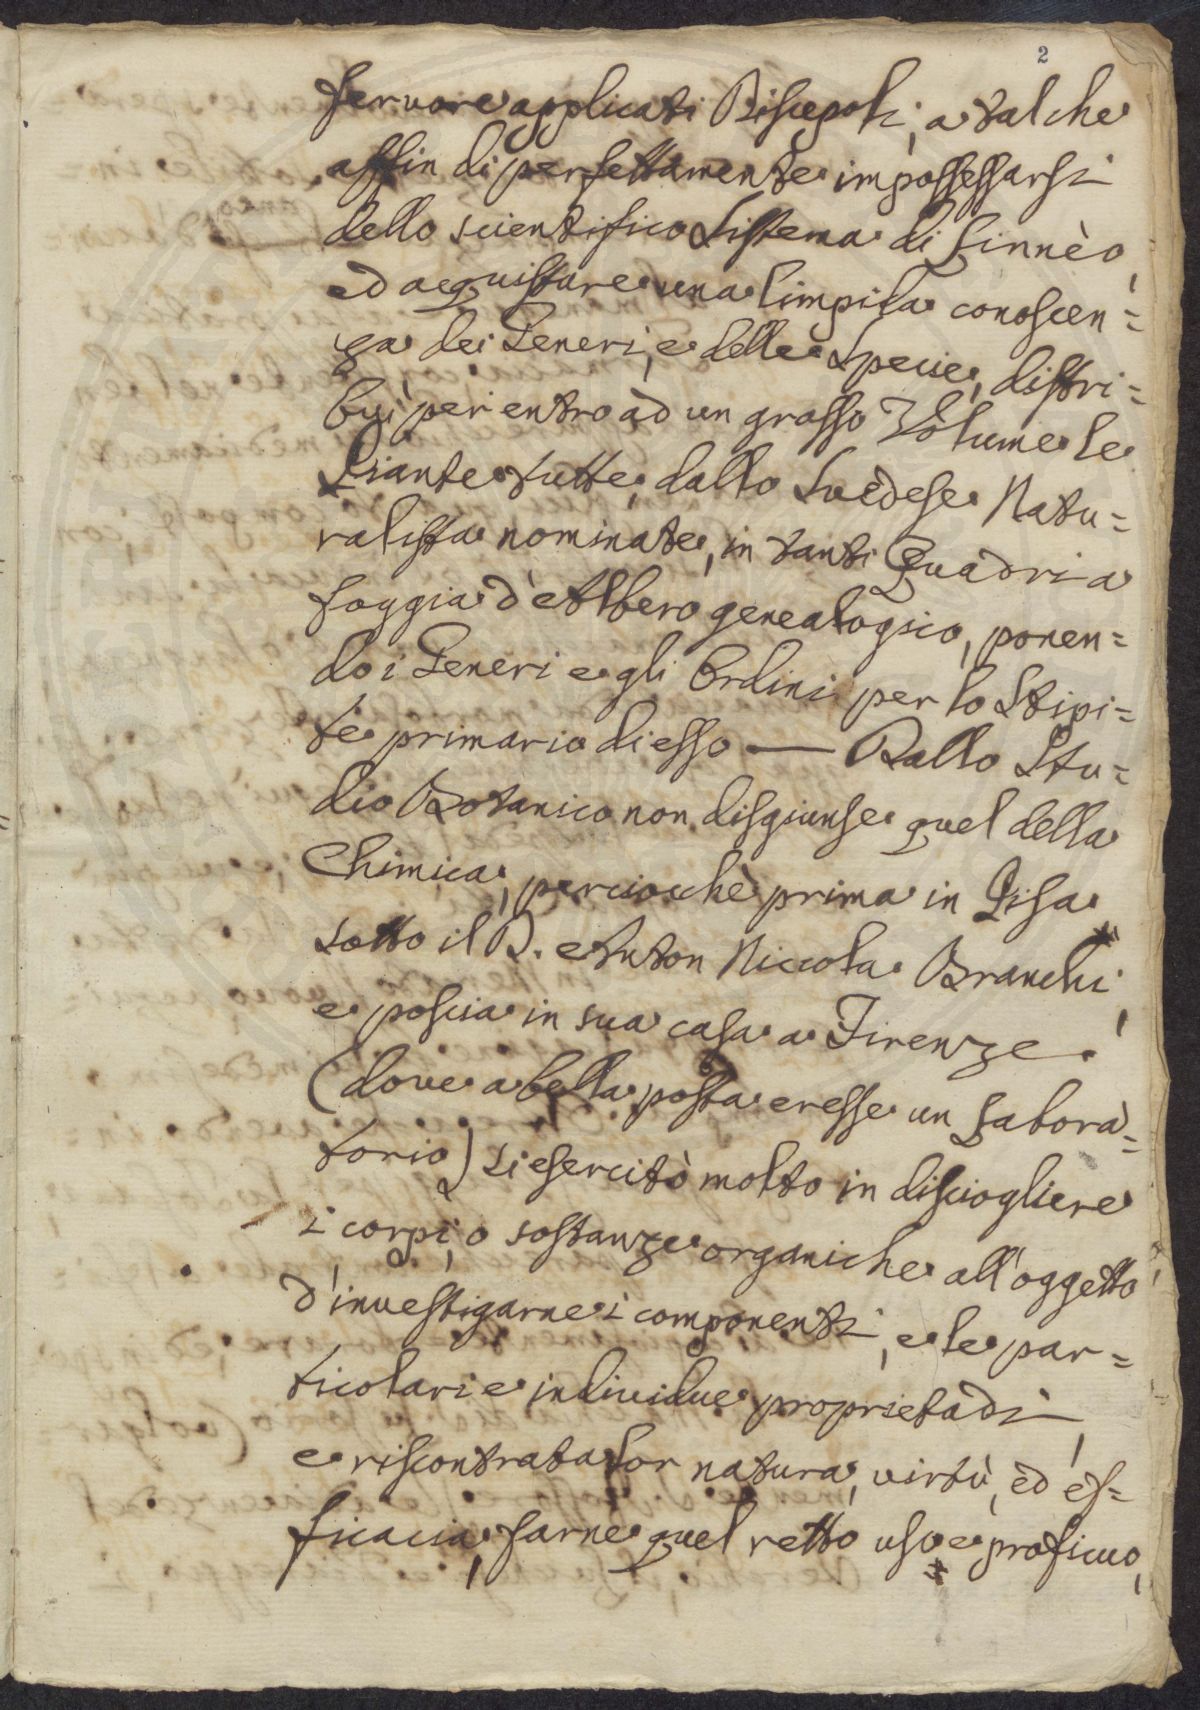 2
fervore applicati Discepoli, a tal che
affin di perfettamente impossessarsi
dello scientifico Sistema di Linnèo,
ed acquistare una limpida conoscen=
za dei Generi, e delle Specie, distri=
buì per entro ad un grosso Volume le
Piante tutte, dallo Svedese Natu=
ralista nominate, in tanti Quadri a
foggia d'Albero genealogico, ponen=
do i Generi e gli Ordini per lo Stipi=
te primario di esso — Dallo Stu=
dio Botanico non disgiunse quel della
Chimica, perciocchè prima in Pisa
sotto il D. Anton Niccola Branchi,
e poscia in sua casa a Firenze.
(dove a bella posta eresse un Labora=
torio) si esercitò molto in disciogliere
i corpi, o sostanze organiche all'oggetto
d'investigarne i componenti, e le par=
ticolari e individue proprietadi,
e riscontrata lor natura, virtù, ed ef=
ficacia, farne quel retto uso e proficuo,